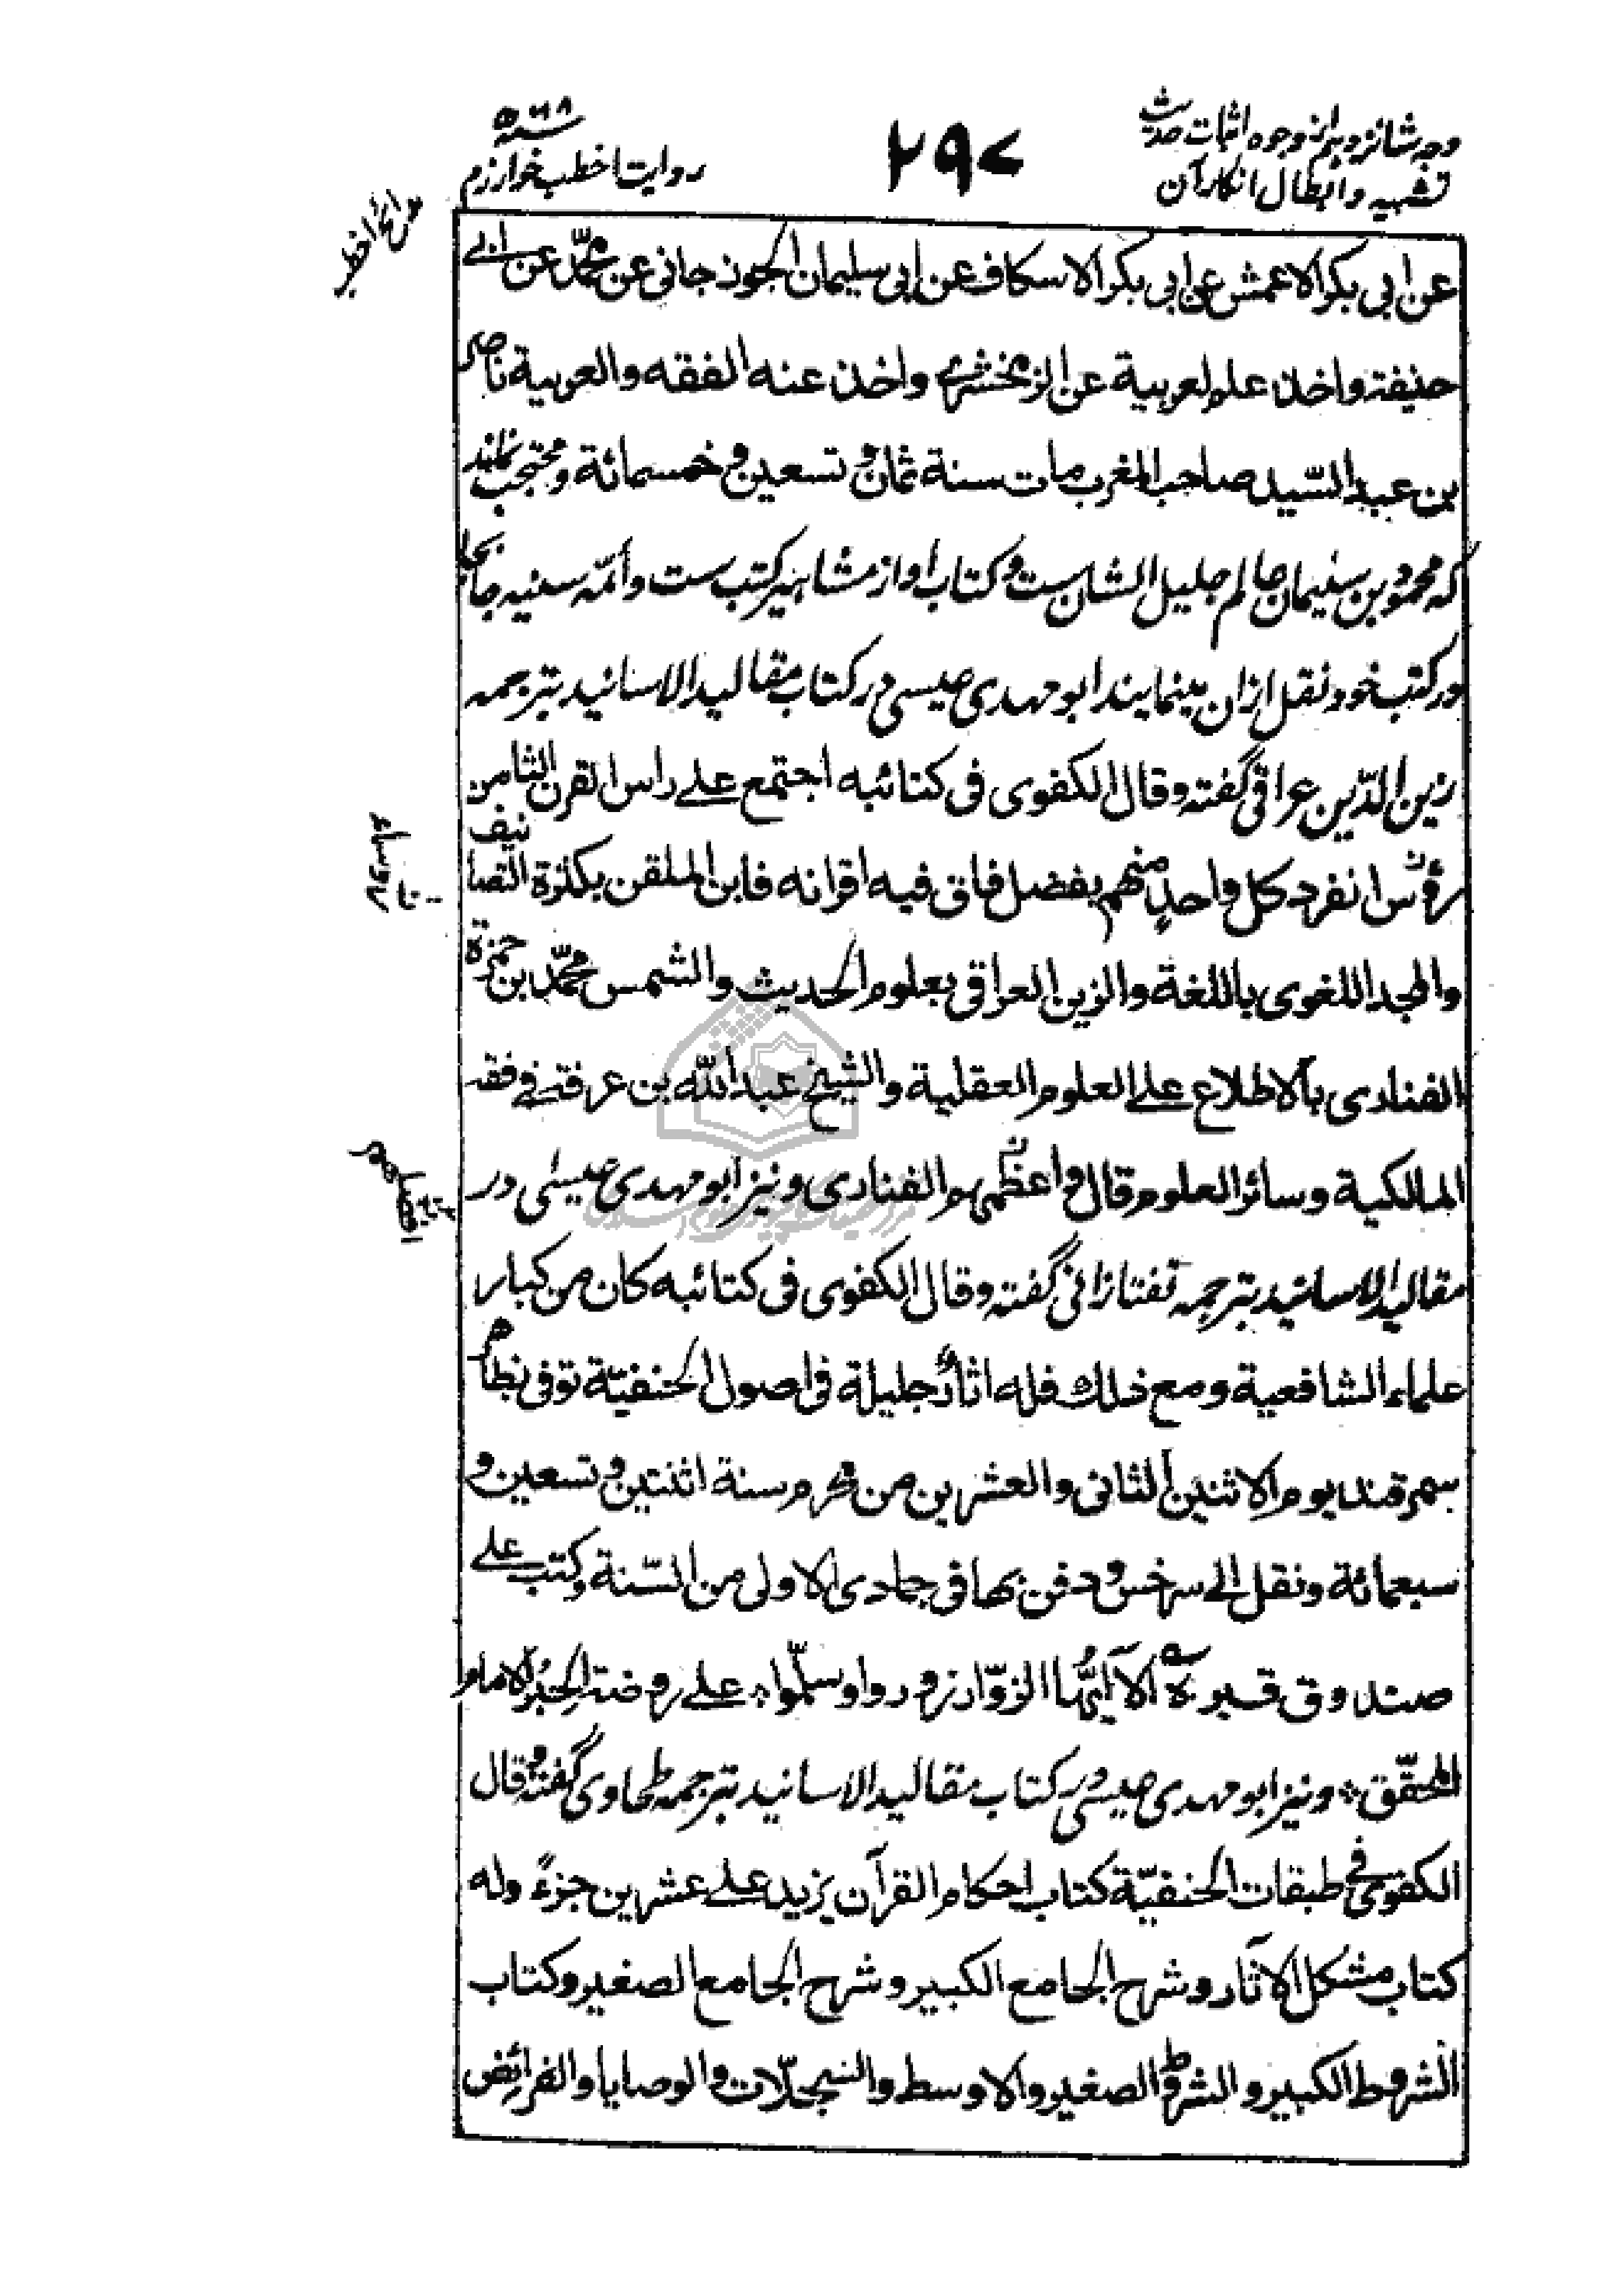 وجه شانزدهم از وجوه اثبات حدیث
تشبیه و ابطال انکار آن
۲۹۷
روایت اخطب خوارزم
مدائح اخطب
عن ابی بکر الاعمش عن ابی بکر الاسکاف عن ابی سلیمان الجوزجانی عن محمّد عن ابے
حنیفة واخذ علم العربیة عن الزمخشرے واخذ عنه الفقه والعربیة ناصر
بن عبد السّید صاحب المغرب مات سنة ثمان و تسعین و خمسمائة و محتجب نماند
که محمود بن سلیمان عالم جلیل الشان ست و کتاب او از مشاهیر کتب ست و ائمّه سنیه جابجا
در کتب خود نقل ازان مینمایند ابو مهدی عیسی در کتاب مقالید الاسانید بترجمه
زین الدّین عراقی گفته وقال الکفوی فی کتائبه اجتمع علے راس القرن الثامن
رؤس انفرد کل واحدٍ منهم بفضل فاق فیه اقرانه فابن الملقن بکثرة التصانیف
والمجد اللغوی باللغة والزین العراقی بعلوم الحدیث والشمس محمّد بن حمزة
الفناری بالاطلاع علے العلوم العقلیة والشیخ عبد الله بن عرفة فی فقه
المالکیة وسائر العلوم قال واعظمهم الفناری و نیز ابو مهدی عیسی در
مقالید الاسانید بترجمه تفتازانی گفته وقال الکفوی فی کتائبه کان من کبار
علماء الشافعیة ومع ذلك فله اثار جلیلة فی اصول الحنفیّة توفی بظاهر
سمرقند یوم الاثنین الثانی والعشرین من محرم سنة اثنتین و تسعین و
سبعمائة ونقل الی سرخس ودفن بها فی جمادی الاولی من السّنة وکتب علے
صندوق قبره الا ایّها الزوّار زوروا وسلّموا علے روضة الحبر الامام
المحقّق و نیز ابو مهدی عیسی در کتاب مقالید الاسانید بترجمه طحاوی گفته وقال
الکفوی فی طبقات الحنفیّة کتاب احکام القرآن یزید علے عشرین جزءً وله
کتاب مشکل الآثار وشرح الجامع الکبیر وشرح الجامع الصغیر وکتاب
الشروط الکبیر والشروط الصغیر والاوسط والسجلّات والوصایا والفرائض